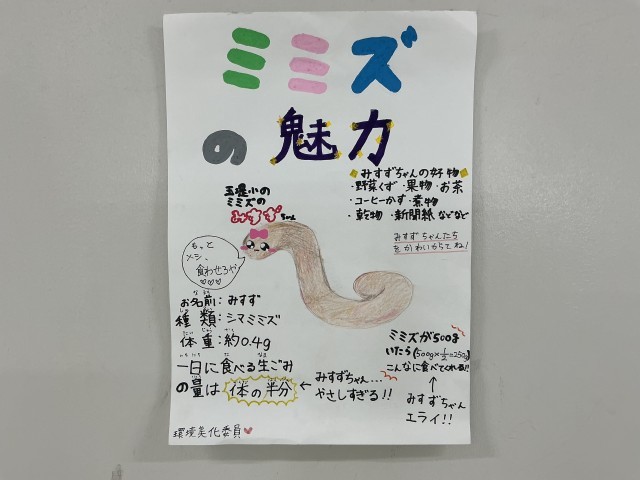 ミミズ
の魅力
◆みすずちゃんの好物◆
・野菜くず・果物・お茶
・コーヒーかす・煮物
・乾物・新聞紙などなど
みすずちゃんたち
をかわいがってね!
玉堤小の
ミミズの
みすずちゃん
もっと
メシ、
食わせろや
♡♡♡
お名前:みすず
種類:シマミミズ
体重:約0.4g
一日に食べる生ごみ
の量は体の半分
←みすずちゃん…
やさしすぎる!!
ミミズが500g
いたら(500g×1/2=250g)
こんなに食べてくれる!!
↑
みすずちゃん
エライ!!
環境美化委員